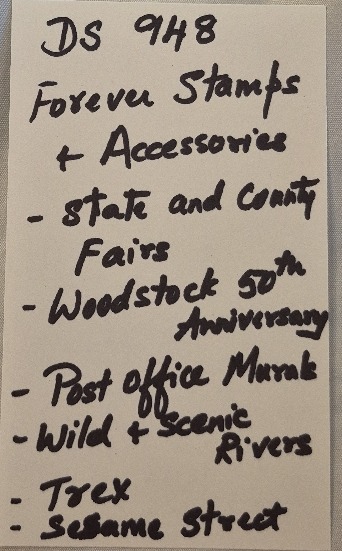 DS 948
Forever Stamps
+ Accessories
- State and County
Fairs
- Woodstock 50th
Anniversary
- Post office Murals
- Wild + Scenic
Rivers
- Trex
- Sesame Street